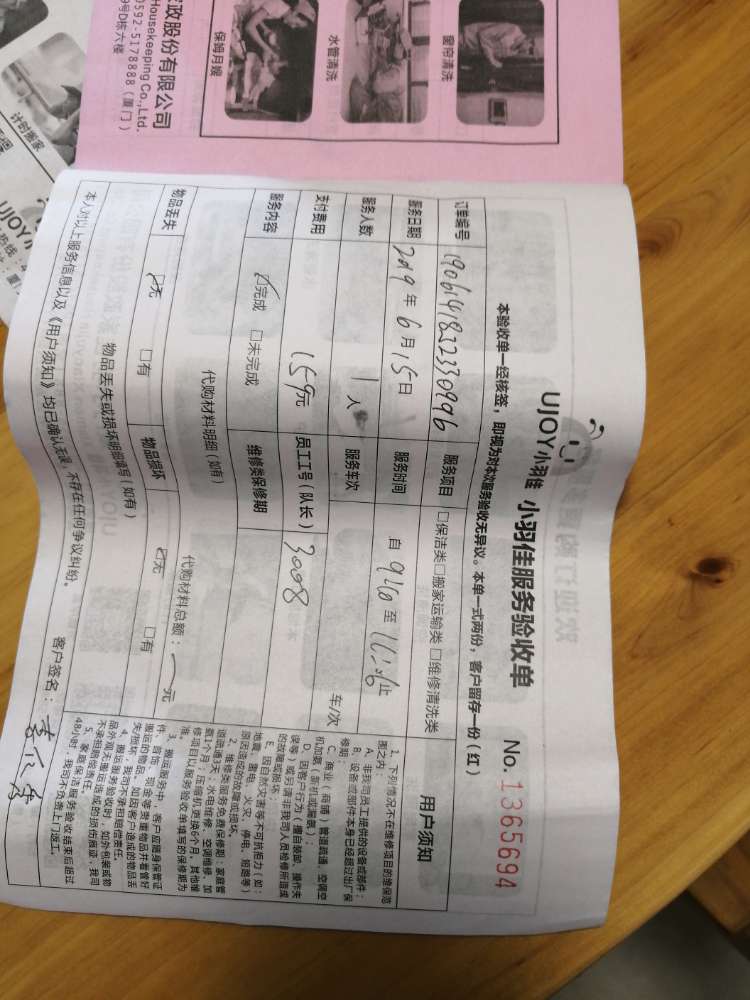 窗帘清洗
水管清洗
保姆月嫂
家政股份有限公司
Housekeeping Co.,Ltd.
0592-5178888（厦门）
9号D栋六楼
计时搬家
UJOY小羽佳 小羽佳服务验收单
No. 1365694
本验收单一经核签，即视为对本次服务验收无异议。本单一式两份，客户留存一份（红）
订单编号 190614182332330996 服务项目 □保洁类□搬家运输类□维修清洗类
服务日期 2019年6月15日 服务时间 自 9:20 至 11:26止
服务人数 1人 服务车次 车/次
支付费用 159元 员工工号（队长） 3008
服务内容 ☑完成 □未完成 维修类保修期
代购材料明细（如有） 代购材料总额： 元
物品丢失 ☑无 □有 物品损坏 ☑无 □有
物品丢失或损坏明细填写（如有）
本人对以上服务信息以及《用户须知》均已确认无误，不存在任何争议纠纷。
客户签名：
用户须知
1、下列情况不在维修项目的维保范
围之内：
A、非我司员工提供的设备或部件；
B、设备或部件本身已经超过出厂保
修期；
C、商业（商铺）管道疏通、空调空
机加氨（新机或漏氨）；
D、因客户行为（擅自装卸、操作失
误等）或另请非我司人员检修所造成
的故障或损坏；
E、因自然灾害等不可抗拒力（如：
地震、雷电、火灾、停电、短路等）
原因造成的故障或损坏。
2、维修类服务免费保修期：家庭管
道疏通3天；水电维修、空调维修、加
氨1个月；压缩机更换6个月，其他维
修项目以服务验收单填写的保修期为
准。
3、搬运服务中，客户应随身保管证
件、首饰、现金等贵重物品并看管好
搬运的物品，如因客户造成的物品丢
失/损坏，我司不承担赔偿责任。
4、搬运服务验收时，如外包装或物
品外观无搬运造成的损伤痕迹，我司
不承担赔偿责任。
5、家庭保洁服务验收结束后超过
48小时，我司不负责上门返工。